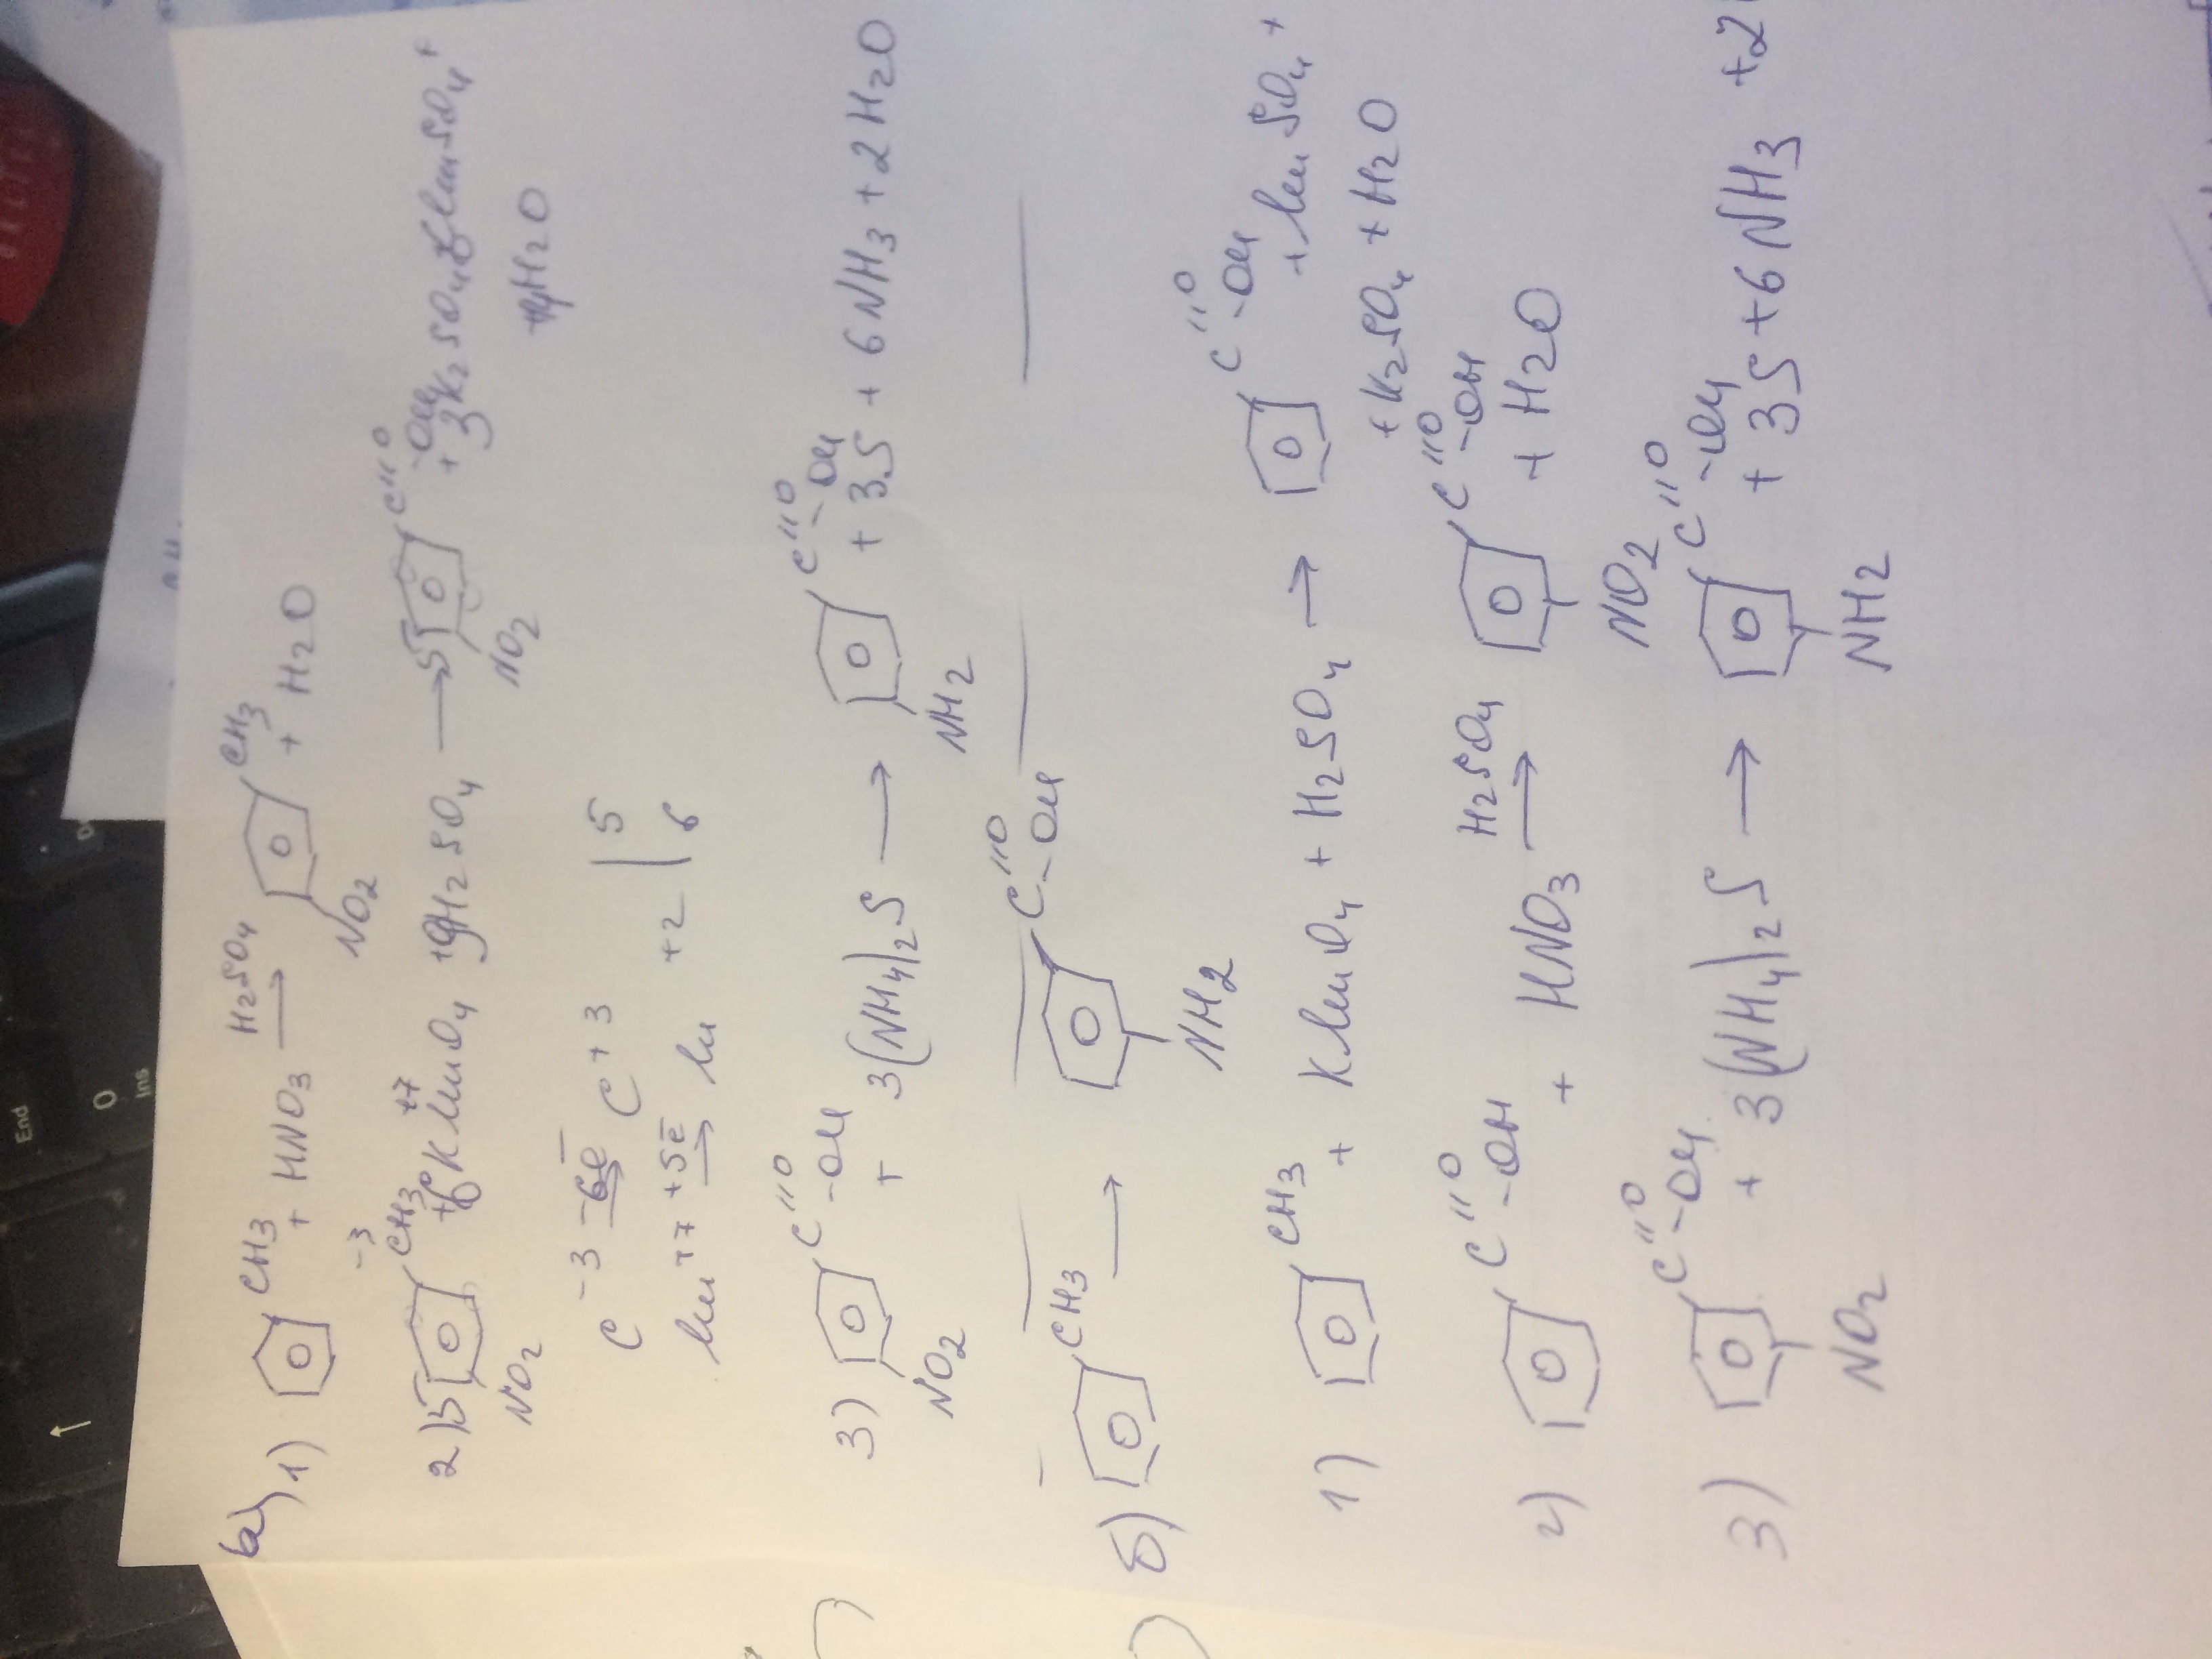 а) 1) CH3 + HNO3 H2SO4 → CH3 NO2 + H2O
2) 5 CH3 -3 NO2 + 6KMnO4 +7 + 9H2SO4 → 5 C=O -OH NO2 + 3K2SO4 + 6MnSO4 +
H2O
C -3 -6e C +3 | 5
Mn +7 +5e → Mn +2 | 6
3) C=O -OH NO2 + 3(NH4)2S → C=O -OH NH2 + 3S + 6NH3 + 2H2O
б) CH3 → C=O -OH NH2
1) CH3 + KMnO4 + H2SO4 → C=O -OH + MnSO4 +
+ K2SO4 + H2O
2) C=O -OH + HNO3 H2SO4 → C=O -OH NO2 + H2O
3) C=O -OH NO2 + 3(NH4)2S → C=O -OH NH2 + 3S + 6NH3 + 2
End
0
Ins